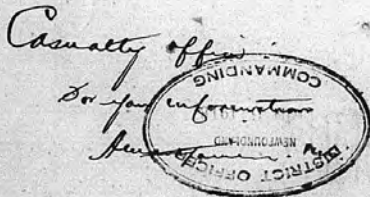 Casualty office
For your information
DISTRICT OFFICER
COMMANDING
NEWFOUNDLAND